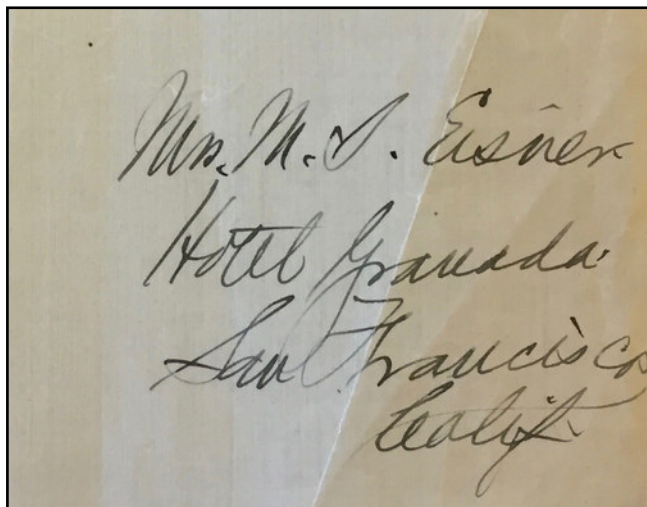 Mrs. M. S. Eisner
Hotel Granada
San Francisco
Calif.